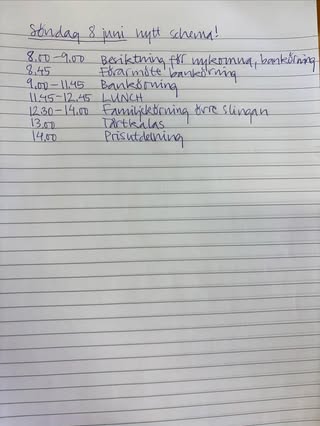 Söndag 8 juni nytt schema!
8.00-9.00 Besiktning för nykomna, bankörning
8.45 Förarmöte bankörning
9.00-11.45 Bankörning
11.45-12.45 LUNCH
12.30-14.00 Familjekörning övre slingan
13.00 Tårtkalas
14.00 Prisutdelning